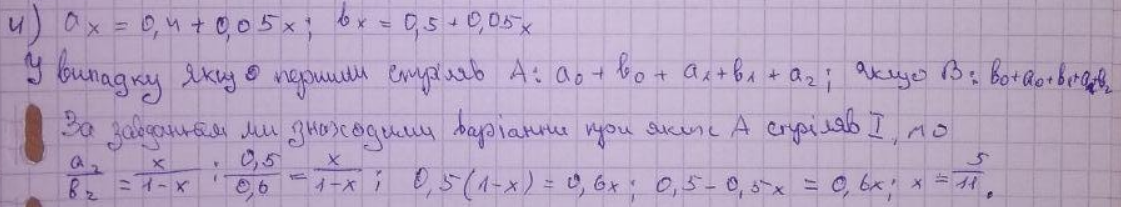 4) aₓ = 0,4 + 0,05x; bₓ = 0,5 + 0,05x
У випадку якщо першим стріляв A: a₀ + b₀ + a₁ + b₁ + a₂; якщо B: b₀+a₀+b₁+a₁+b₂
За завданням ми знаходимо варіанти при яких A стріляв I, то
a₂/b₂ = x/1-x ; 0,5/0,6 = x/1-x ; 0,5(1-x) = 0,6x; 0,5 - 0,5x = 0,6x; x = 5/11.